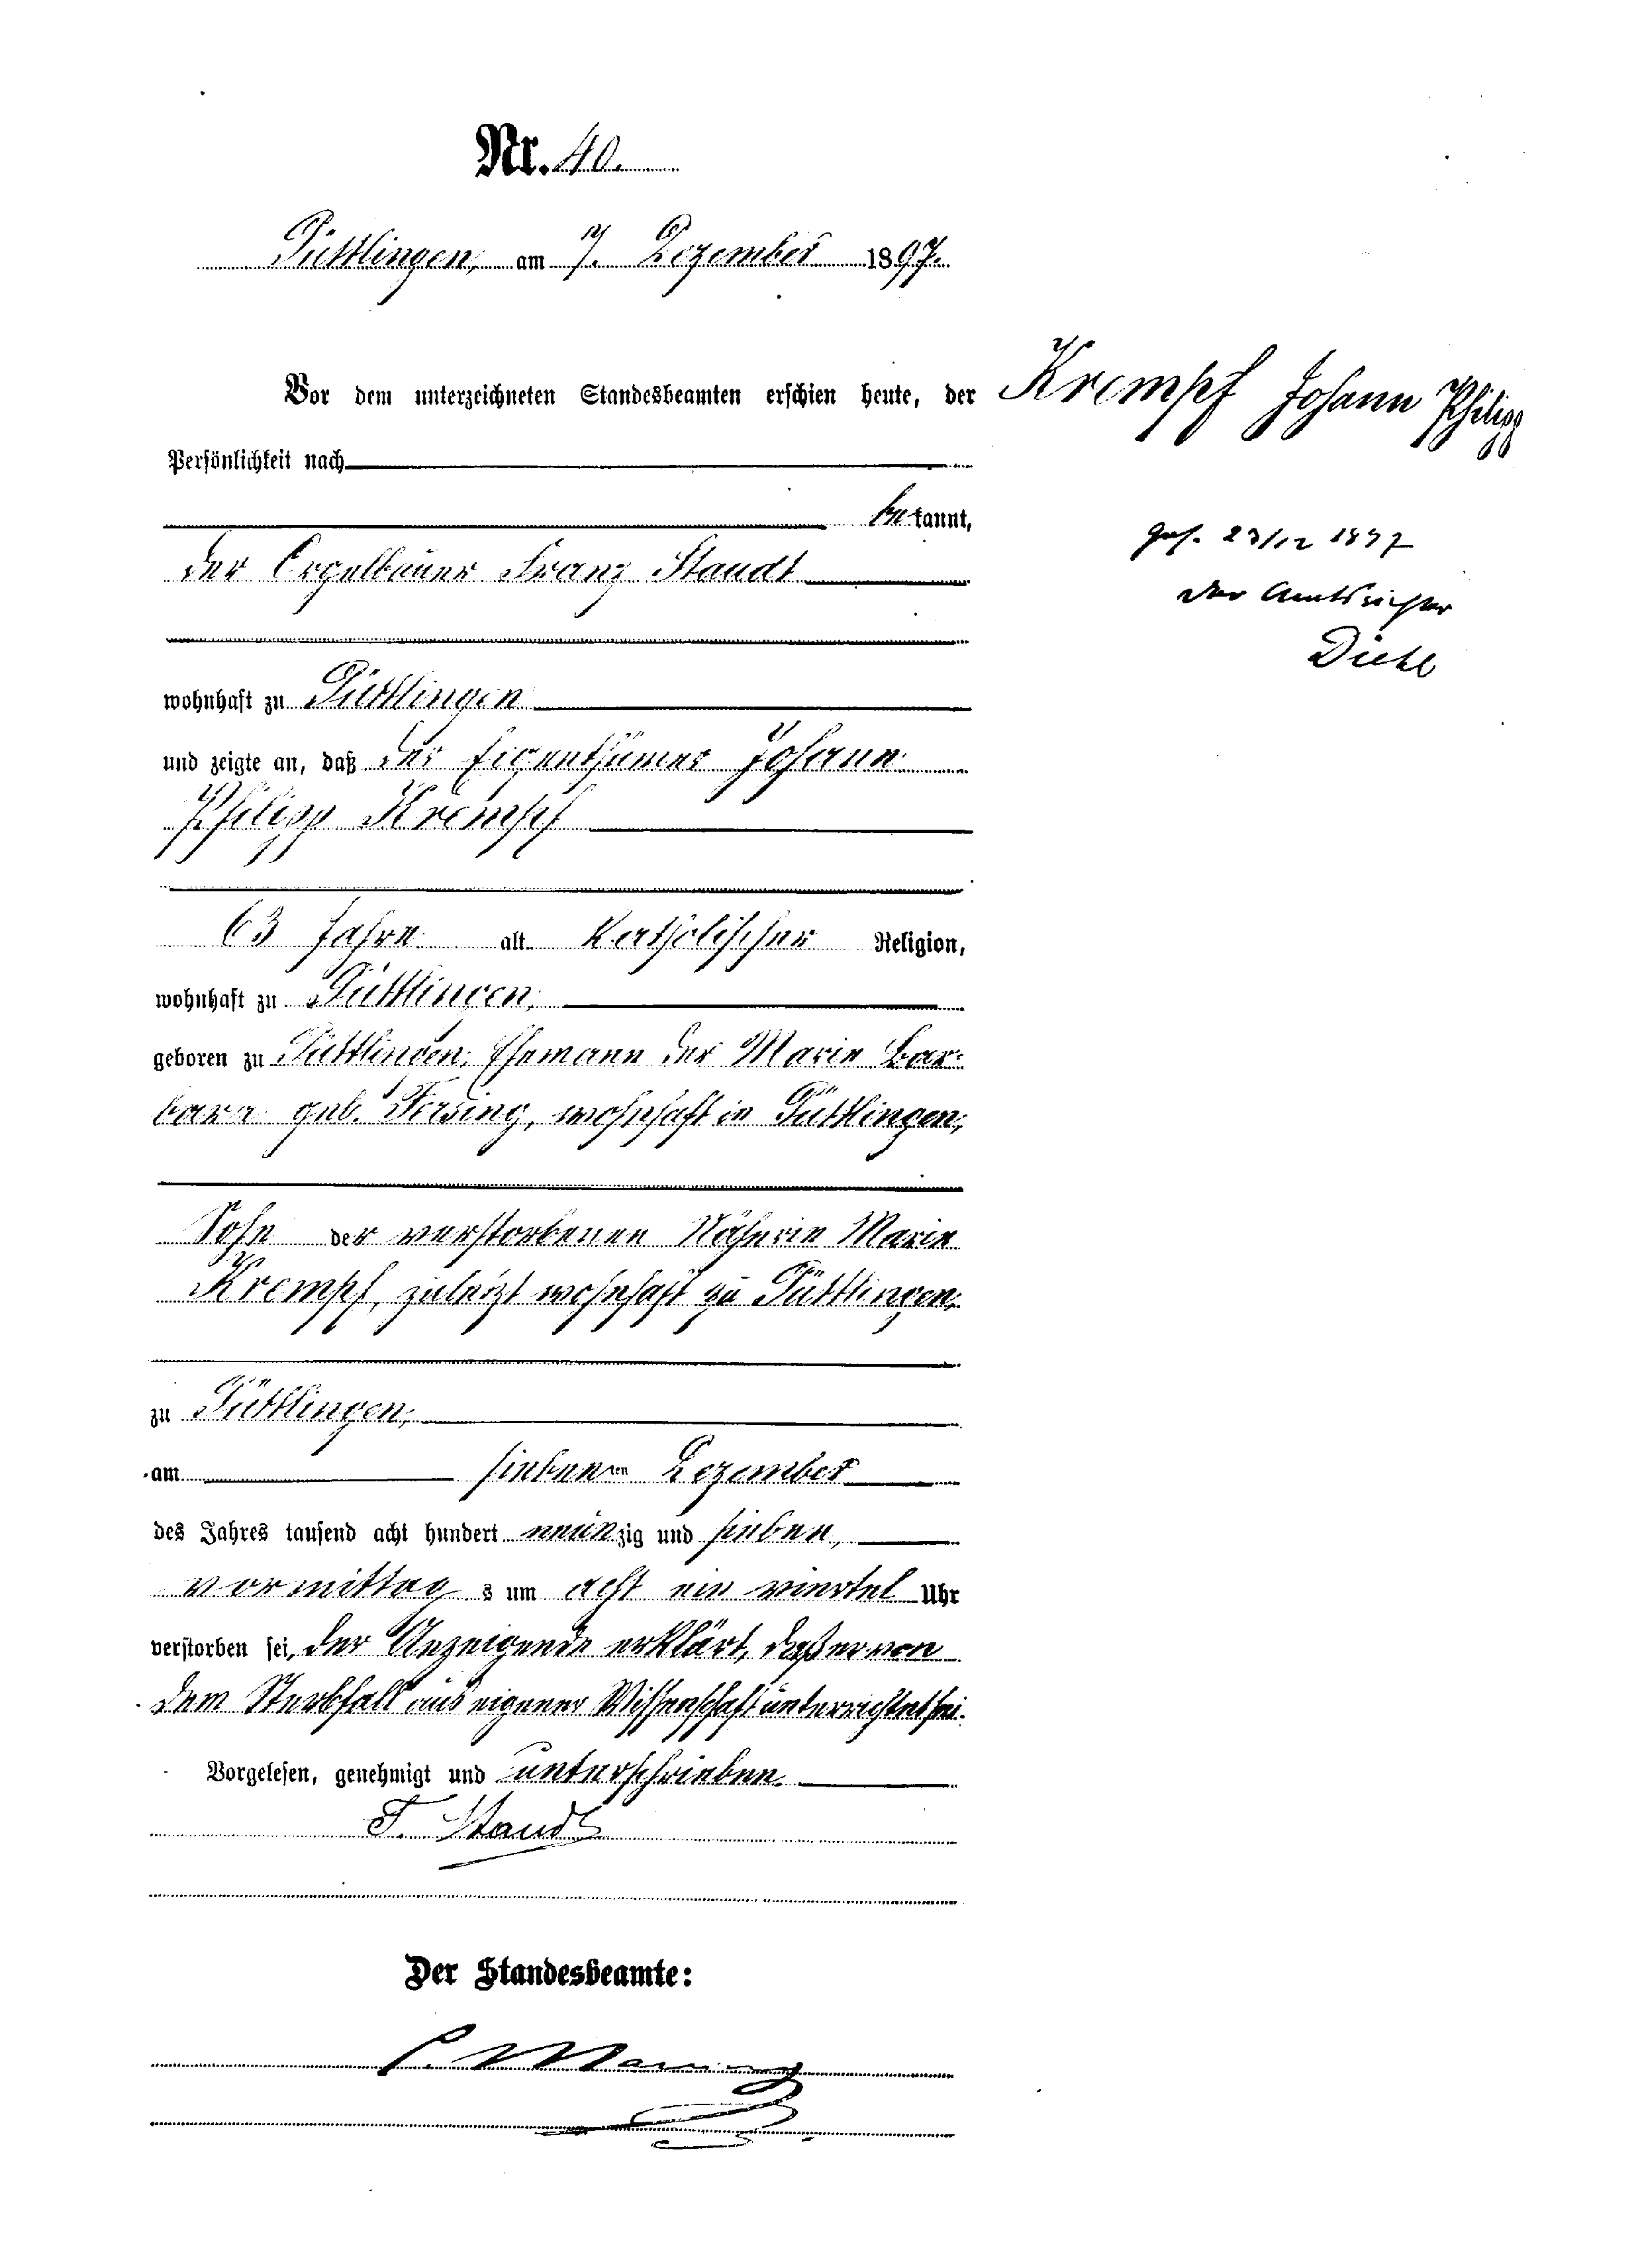 Nr. 40.
Püttlingen, am 7. Dezember 1897.
Vor dem unterzeichneten Standesbeamten erschien heute, der
Persönlichkeit nach
bekannt,
der Orgelbauer Franz Staudt
wohnhaft zu Püttlingen
und zeigte an, daß der Eigenthümer Johann
Philipp Krempf
63 Jahre alt katholischer Religion,
wohnhaft zu Püttlingen,
geboren zu Püttlingen, Ehemann der Marie Bar-
bara geb. Fersing, wohnhaft in Püttlingen,
Sohn der verstorbenen Näherin Marie
Krempf, zuletzt wohnhaft zu Püttlingen,
zu Püttlingen,
am siebenten Dezember
des Jahres tausend acht hundert neunzig und sieben,
vormittags um acht ein viertel Uhr
verstorben sei, der Anzeigende erklärt, daß er von
dem Sterbfall aus eigener Wissenschaft unterrichtet sei.
Vorgelesen, genehmigt und unterschrieben.
F. Staudt
Der Standesbeamte:
Krempf Johann Philipp
Ges. 23/12 1897
Der Amtsrichter
Diehl